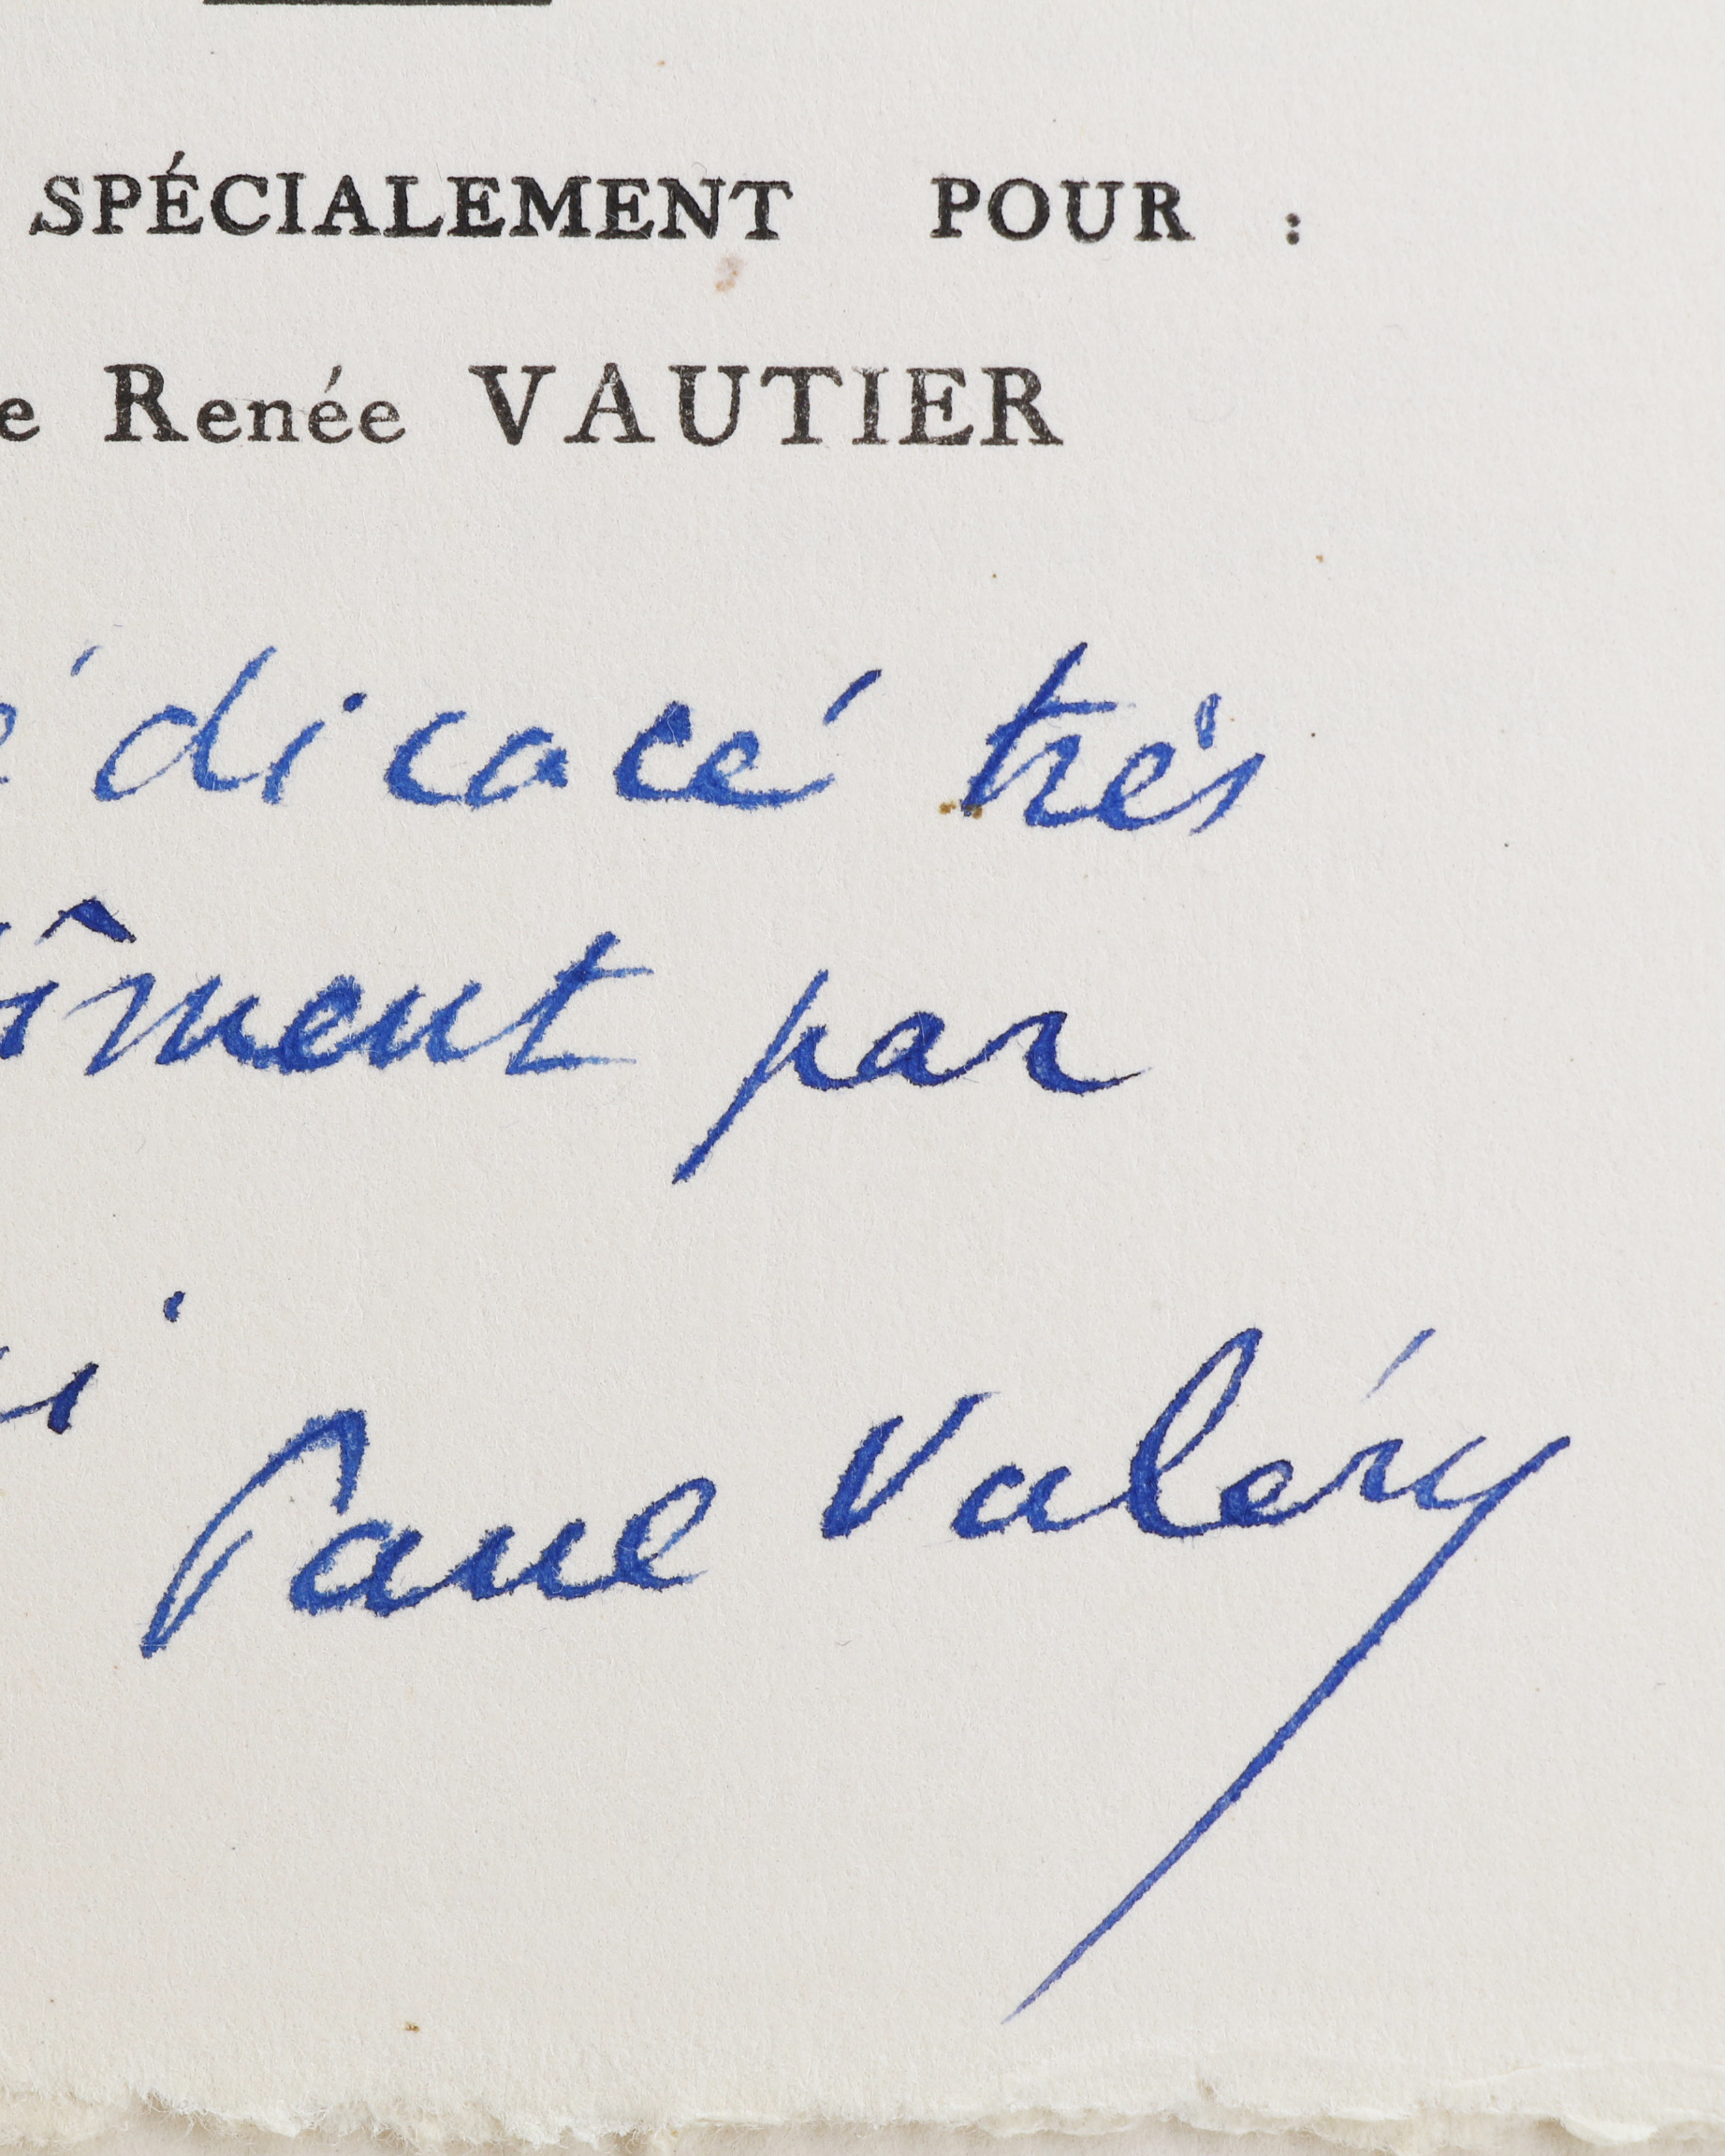 SPÉCIALEMENT POUR :
e Renée VAUTIER
édicacé très
ûment par
i Paul Valéry